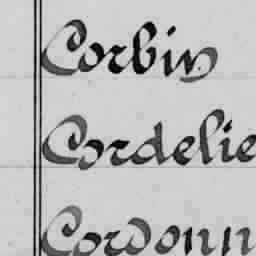 Corbin
Cordelie
Cordonn